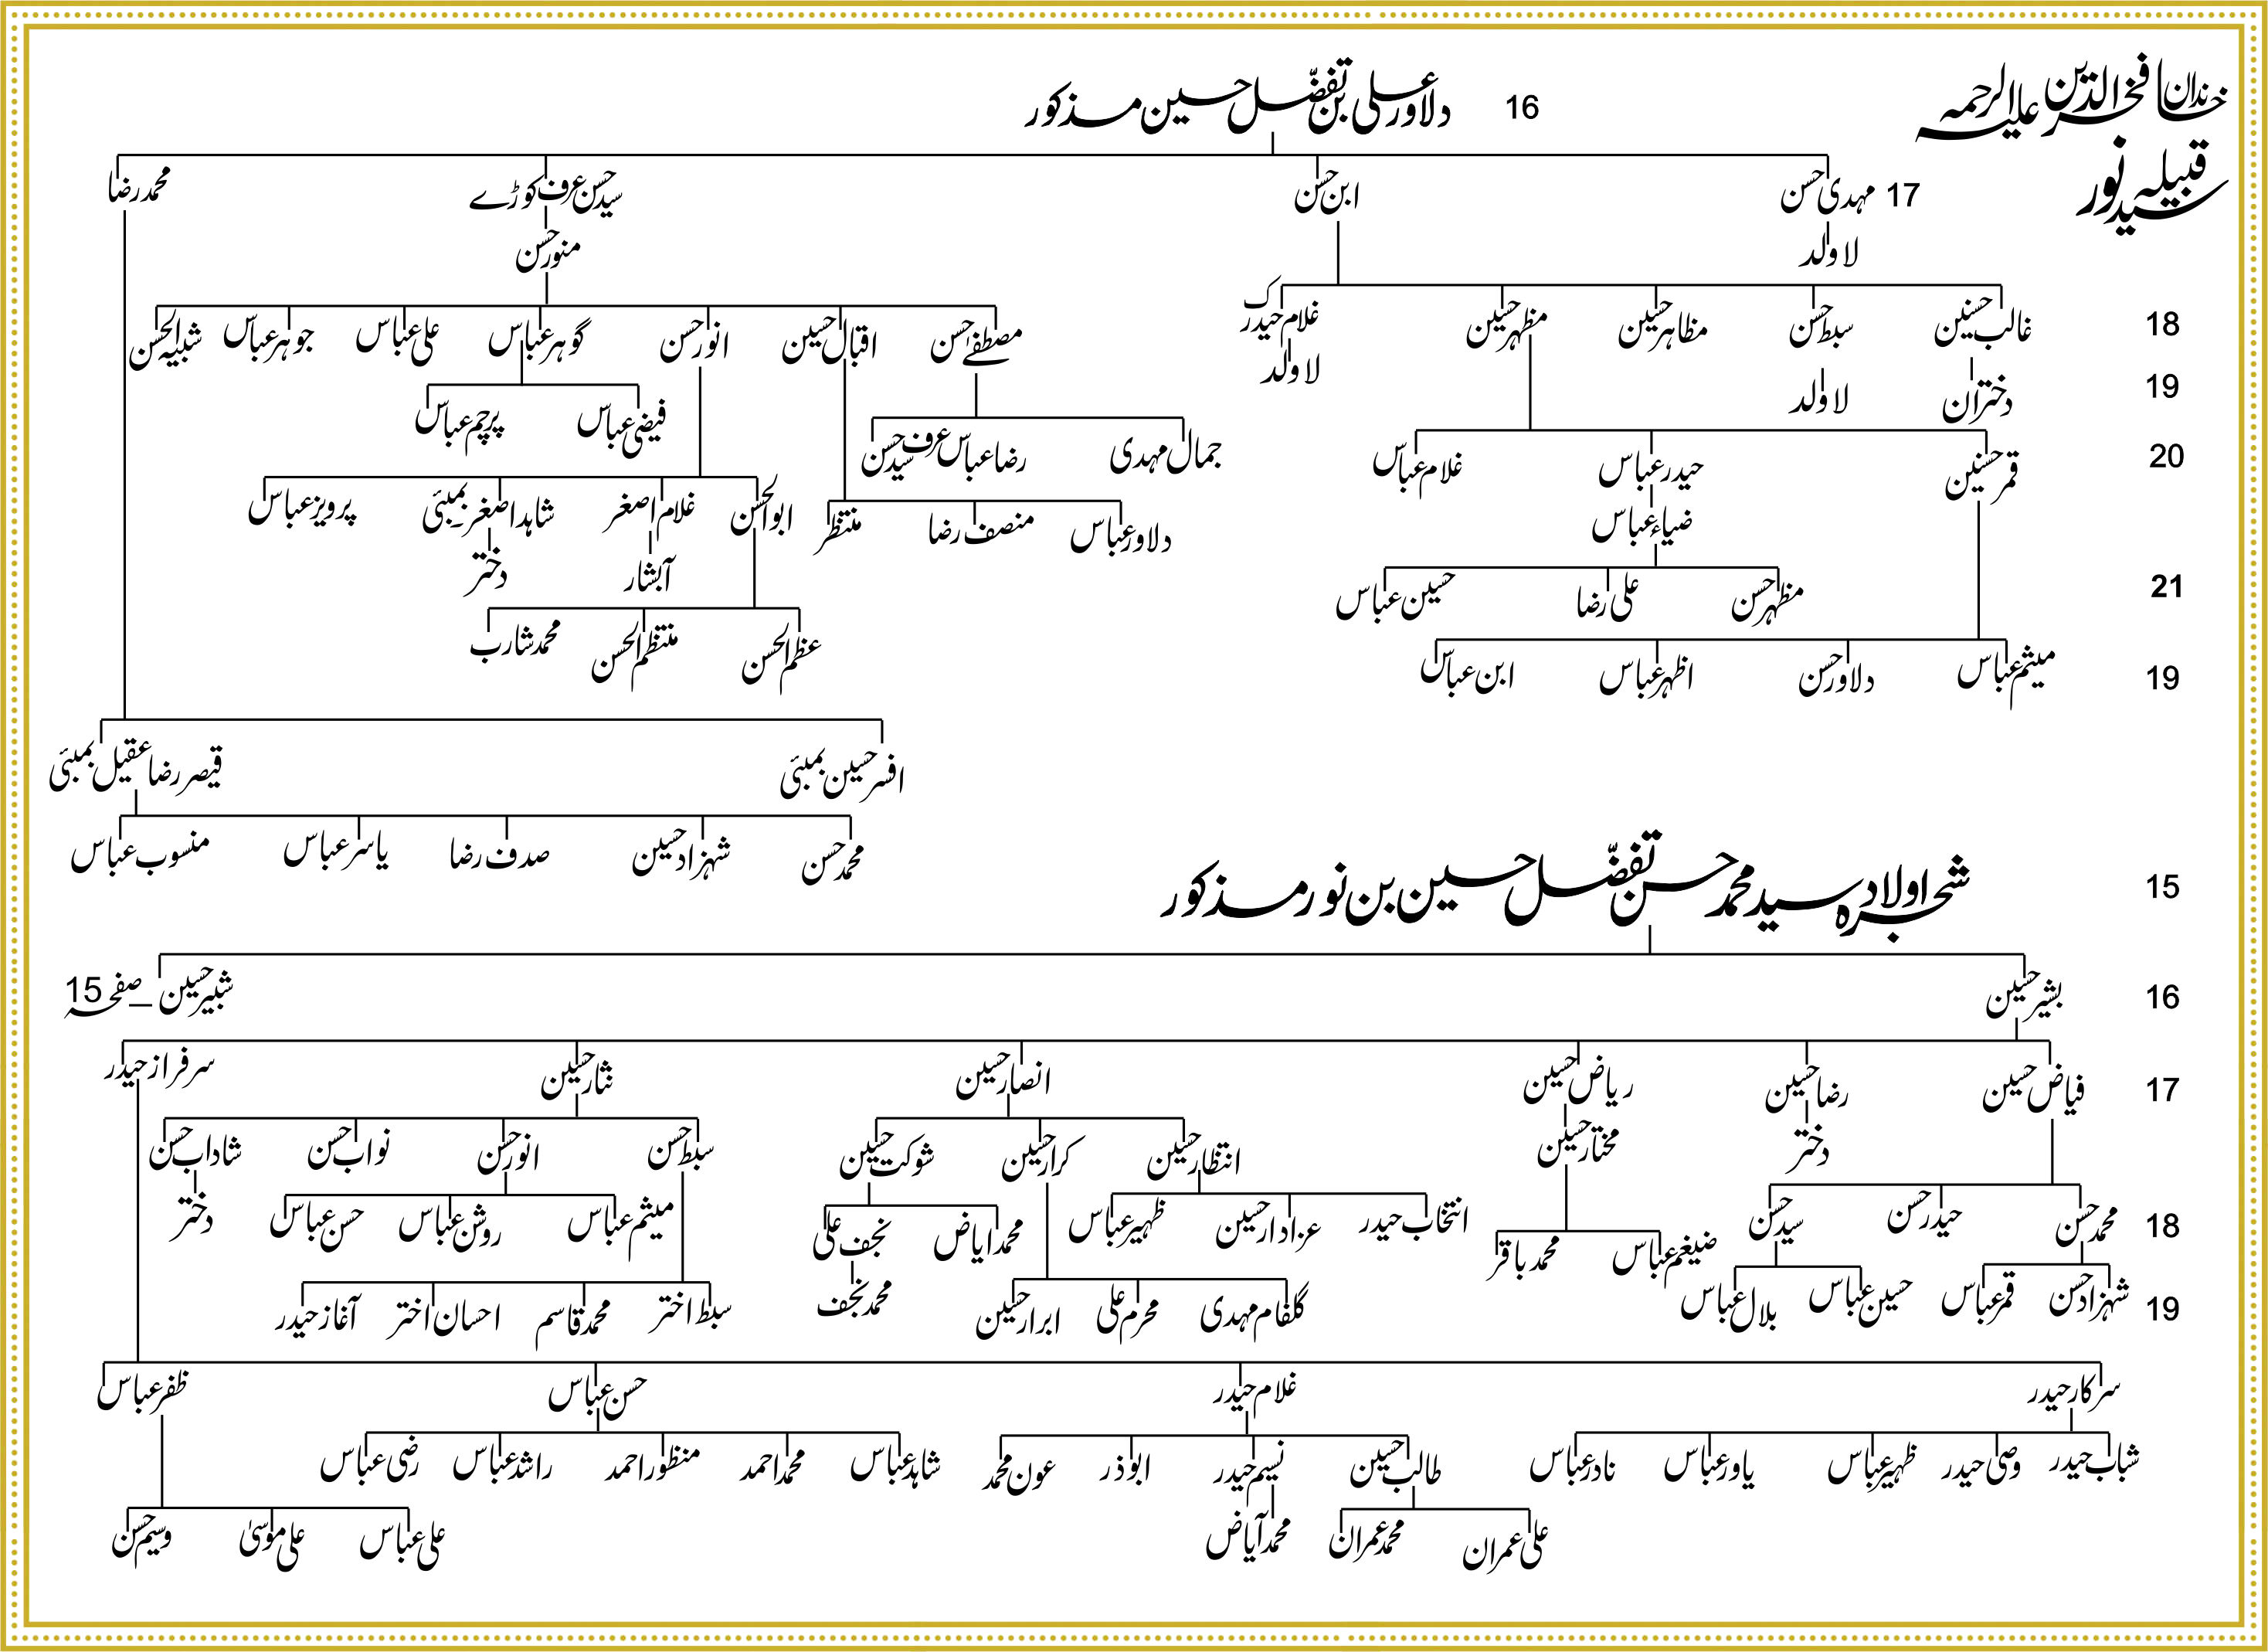 خاندان فخرالدین علیہ الرحمہ
قبیلہ سید نور
16 دلاور علی بن تفضّل حسین مذکور
17 مہدی حسن ابن حسن سید حسن عرف کوڑے محمد رضا
لا ولد منور حسن
18 غالب حسنین سبط حسن مظاہر حسین مظہر حسین غلام حیدرک مصطفےٰ حسن اقبال حسین انور حسن گوہر عباس علی عباس جوہر عباس شبیہ الحسن
19 دختران لا ولد لا ولد فیضی عباس پرچم عباس
20 قمر حسنین حیدر عباس غلام عباس جمال مہدی رضا عباس عرف سید حسن
ضیاء عباس دلاور عباس منصف رضا منتظر ابوالحسن غلام اصغر شاہد اصغر۔بمبئی پرویز عباس
آبشار دختر
21 مظہر حسن علی رضا حسین عباس
عظم الحسن منتظم الحسن محمد شارب
19 میثم عباس دلاور حسن اظہر عباس ابن عباس
افسر حسین بمبئی قیصر رضا عقیل بمبئی
محمد حسن شہزاد حسین صدف رضا یاسر عباس منسوب عباس
15 شجرہ اولاد سید محمد حسن تفضّل حسین بن نور مذکور
16 بشیر حسین شبیر حسین _ صفحہ 15
17 فیاض حسین رضا حسین ریاض حسین انصار حسین نثار حسین سرفراز حیدر
دختر مختار حسین انتظار حسین کرار حسین شوکت حسین سبط حسن انور حسن نواب حسن شاداب حسن
18 محمد حسن حیدر حسن سید حسن ضیغم عباس محمد باقر انتخاب حیدر عزادار حسین ظہیر عباس محمد ایاض نجف علی میثم عباس روشن عباس حسن عباس دختر
19 شہزاد حسن قمر عباس حسین عباس بلال عباس گلفام مہدی محرم علی ابرار حسین محمد نجف سبط اختر محمد قاسم احسان اختر آغاز حیدر
سرکار حیدر غلام حیدر حسن عباس ظفر عباس
شباب حیدر وصی حیدر ظہیر عباس یاور عباس نادر عباس طالب حسین نسیم حیدر ابوذر عون محمد شاہد عباس محمد احمد منظور احمد راشد عباس رضی عباس
علی عمران محمد عمران محمد آیاض علی عباس علی موسیٰ وسیم حسن